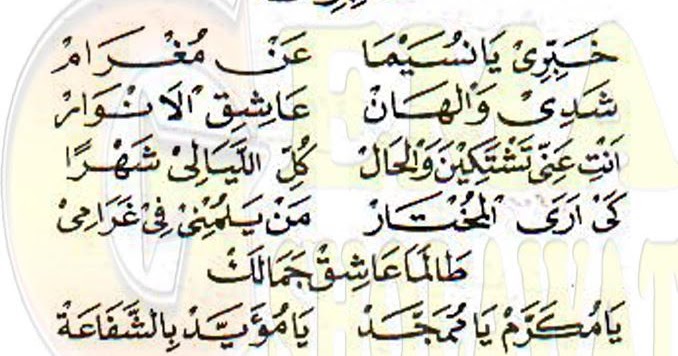 خَبِّرِيْ يَا نُسَيْمَا عَنْ مُغْرَامْ
شَدِيْ وَالْهَانْ عَاشِقِ الْاَنْوَارْ
اَنْتِ عَنِّيْ تَشْتَكِيْنَ وَالْحَالْ كُلِّ اللَّيَالِيْ شَهْرًا
كَيْ اَرَى الْمُخْتَارْ مَنْ يَلُمْنِيْ فِيْ غَرَامِيْ
طَالَمَا عَاشِقْ جَمَالَكْ
يَا مُكَرَّمْ يَا مُمَجَّدْ يَا مُؤَيَّدْ بِالشَّفَاعَةْ